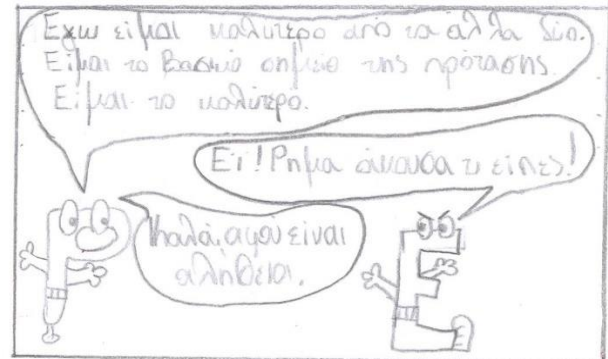 Εγω είμαι καλύτερο από τα άλλα δύο.
Είμαι το βασικό σημείο της πρότασης.
Είμαι το καλύτερο.
Ει! Ρήμα άκουσα τι είπες!
Καλά, αφού είναι
αλήθεια.